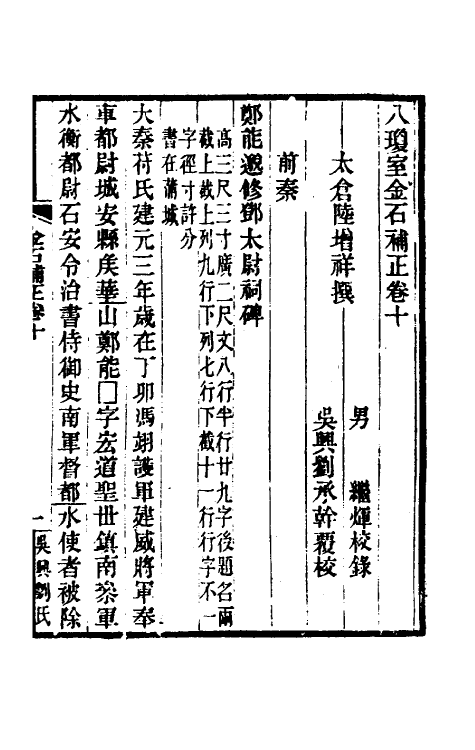 八瓊室金石補正卷十
太倉陸增祥撰
男　繼煇校錄
吳興劉承幹覆校
前秦
鄭能邈修鄧太尉祠碑
高三尺三寸廣二尺文八行半行廿九字後題名兩
截上截上列九行下列七行下截十一行行字不一
字徑寸許分
書在蒲城
大秦苻氏建元三年歲在丁卯馮翊護軍建威將軍奉
車都尉城安縣侯華山鄭能囗字宏道聖世鎮南參軍
水衡都尉石安令治書侍御史南軍督都水使者被除
金石補正卷十
一
吳興劉氏